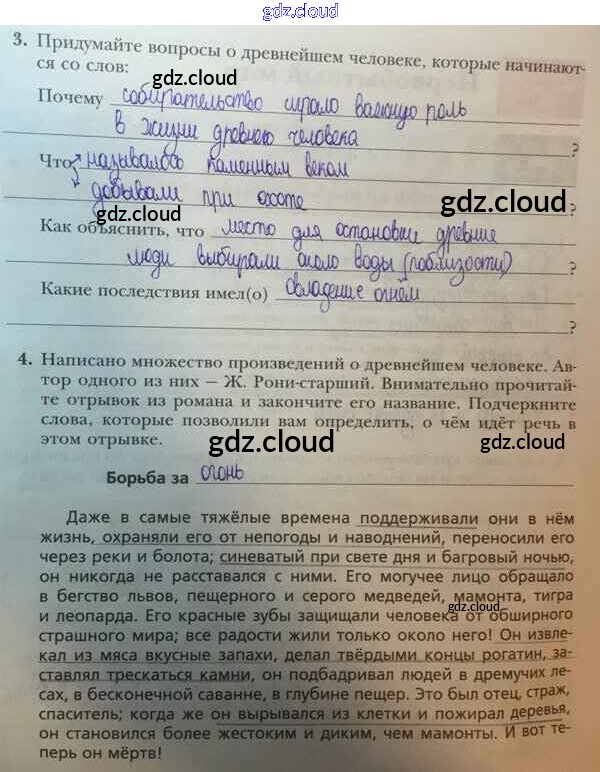 gdz.cloud
3. Придумайте вопросы о древнейшем человеке, которые начинают-
ся со слов:
gdz.cloud
Почему собирательство играло важную роль
в жизни древного человека
?
Что называлось каменным веком
gdz.cloud
добывали при охоте
gdz.cloud
?
Как объяснить, что место для остановки древние
люди выбирали около воды (поблизости)
?
Какие последствия имел(о) овладение огнём
?
4. Написано множество произведений о древнейшем человеке. Ав-
тор одного из них – Ж. Рони-старший. Внимательно прочитай-
те отрывок из романа и закончите его название. Подчеркните
слова, которые позволили вам определить, о чём идёт речь в
этом отрывке.
gdz.cloud
gdz.cloud
Борьба за огонь
Даже в самые тяжёлые времена поддерживали они в нём
жизнь, охраняли его от непогоды и наводнений, переносили его
через реки и болота; синеватый при свете дня и багровый ночью,
он никогда не расставался с ними. Его могучее лицо обращало
в бегство львов, пещерного и серого медведей, мамонта, тигра
и леопарда. Его красные зубы защищали человека от обширного
gdz.cloud
страшного мира; все радости жили только около него! Он извле-
кал из мяса вкусные запахи, делал твёрдыми концы рогатин, за-
ставлял трескаться камни, он подбадривал людей в дремучих ле-
сах, в бесконечной саванне, в глубине пещер. Это был отец, страж,
спаситель; когда же он вырывался из клетки и пожирал деревья,
он становился более жестоким и диким, чем мамонты. И вот те-
перь он мёртв!
gdz.cloud